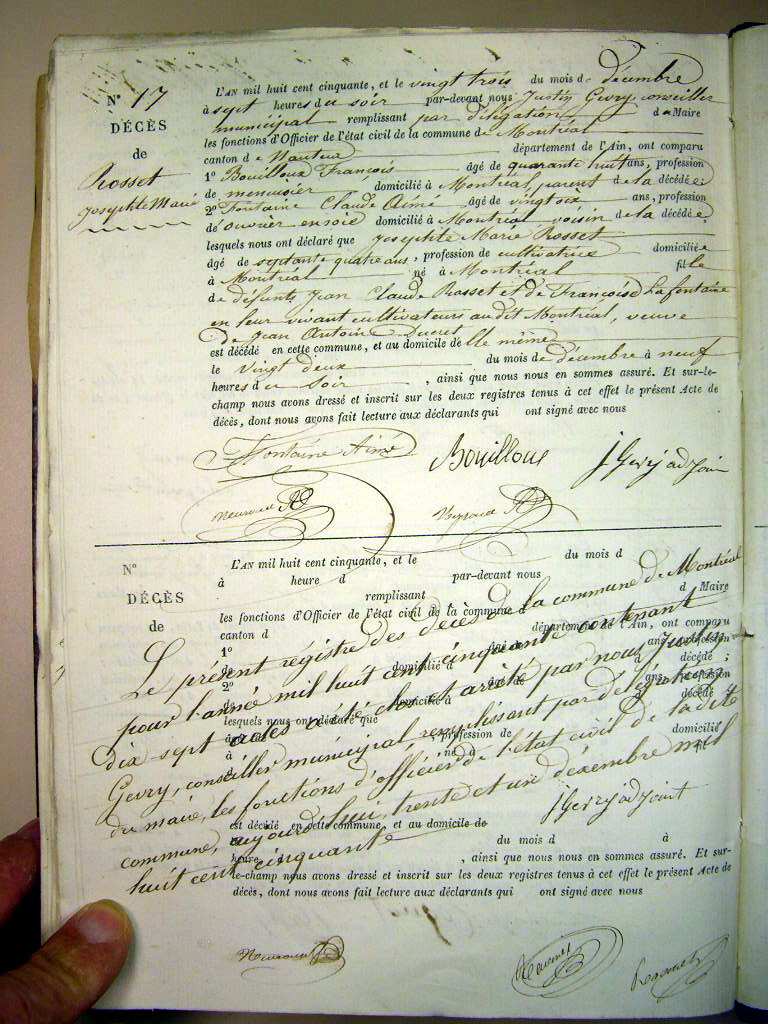 N° 17
DÉCÈS
de
Rosset
Josephte Marie
L'AN mil huit cent cinquante, et le vingt trois du mois de décembre
à sept heures du soir par-devant nous Justin Gevry, conseiller
municipal remplissant par délégation d u Maire
les fonctions d'Officier de l'état civil de la commune de Montréal
canton de Nantua département de l'Ain, ont comparu
1° Bouilloux François âgé de quarante huit ans, profession
de menuisier domicilié à Montréal, parent de la décédée
2° Fontaine Claude Aimé âgé de vingt six ans, profession
de ouvrier en soie domicilié à Montréal voisin de la décédée,
lesquels nous ont déclaré que Josephte Marie Rosset
âgé de septante quatre ans, profession de cultivatrice domiciliée
à Montréal né à Montréal fille
de défunts Jean Claude Rosset et de Françoise Lafontaine
en leur vivant cultivateurs au dit Montréal, veuve
de Jean Antoine Ducret
est décédé en cette commune, et au domicile de lle même
le vingt deux du mois de décembre à neuf
heures du soir , ainsi que nous nous en sommes assuré. Et sur-le-
champ nous avons dressé et inscrit sur les deux registres tenus à cet effet le présent Acte de
décès, dont nous avons fait lecture aux déclarants qui ont signé avec nous
Fontaine Aimé Bouilloux J Gevry adjoint
N°
DÉCÈS
de
L'AN mil huit cent cinquante, et le du mois d
à heure d par-devant nous
remplissant d Maire
les fonctions d'Officier de l'état civil de la commune d
canton d département de l'Ain, ont comparu
1° âgé de ans, profession
de domicilié à décédé ;
2° âgé de ans, profession
de domicilié à décédé
lesquels nous ont déclaré que
âgé de , profession de domicilié
à né à fil
d
Le présent registre des décès de la commune de Montréal
pour l'année mil huit cent cinquante contenant
dix-sept actes a été clos et arrêté par nous Justin
Gevry, conseiller municipal remplissant par délégation
du maire, les fonctions d'officier de l'état civil de la dite
commune, aujourd'hui, trente et un décembre mil
huit cent cinquante
J Gevry adjoint
est décédé en cette commune, et au domicile de
le du mois d à
heure , ainsi que nous nous en sommes assuré. Et sur-
le-champ nous avons dressé et inscrit sur les deux registres tenus à cet effet le présent Acte de
décès, dont nous avons fait lecture aux déclarants qui ont signé avec nous